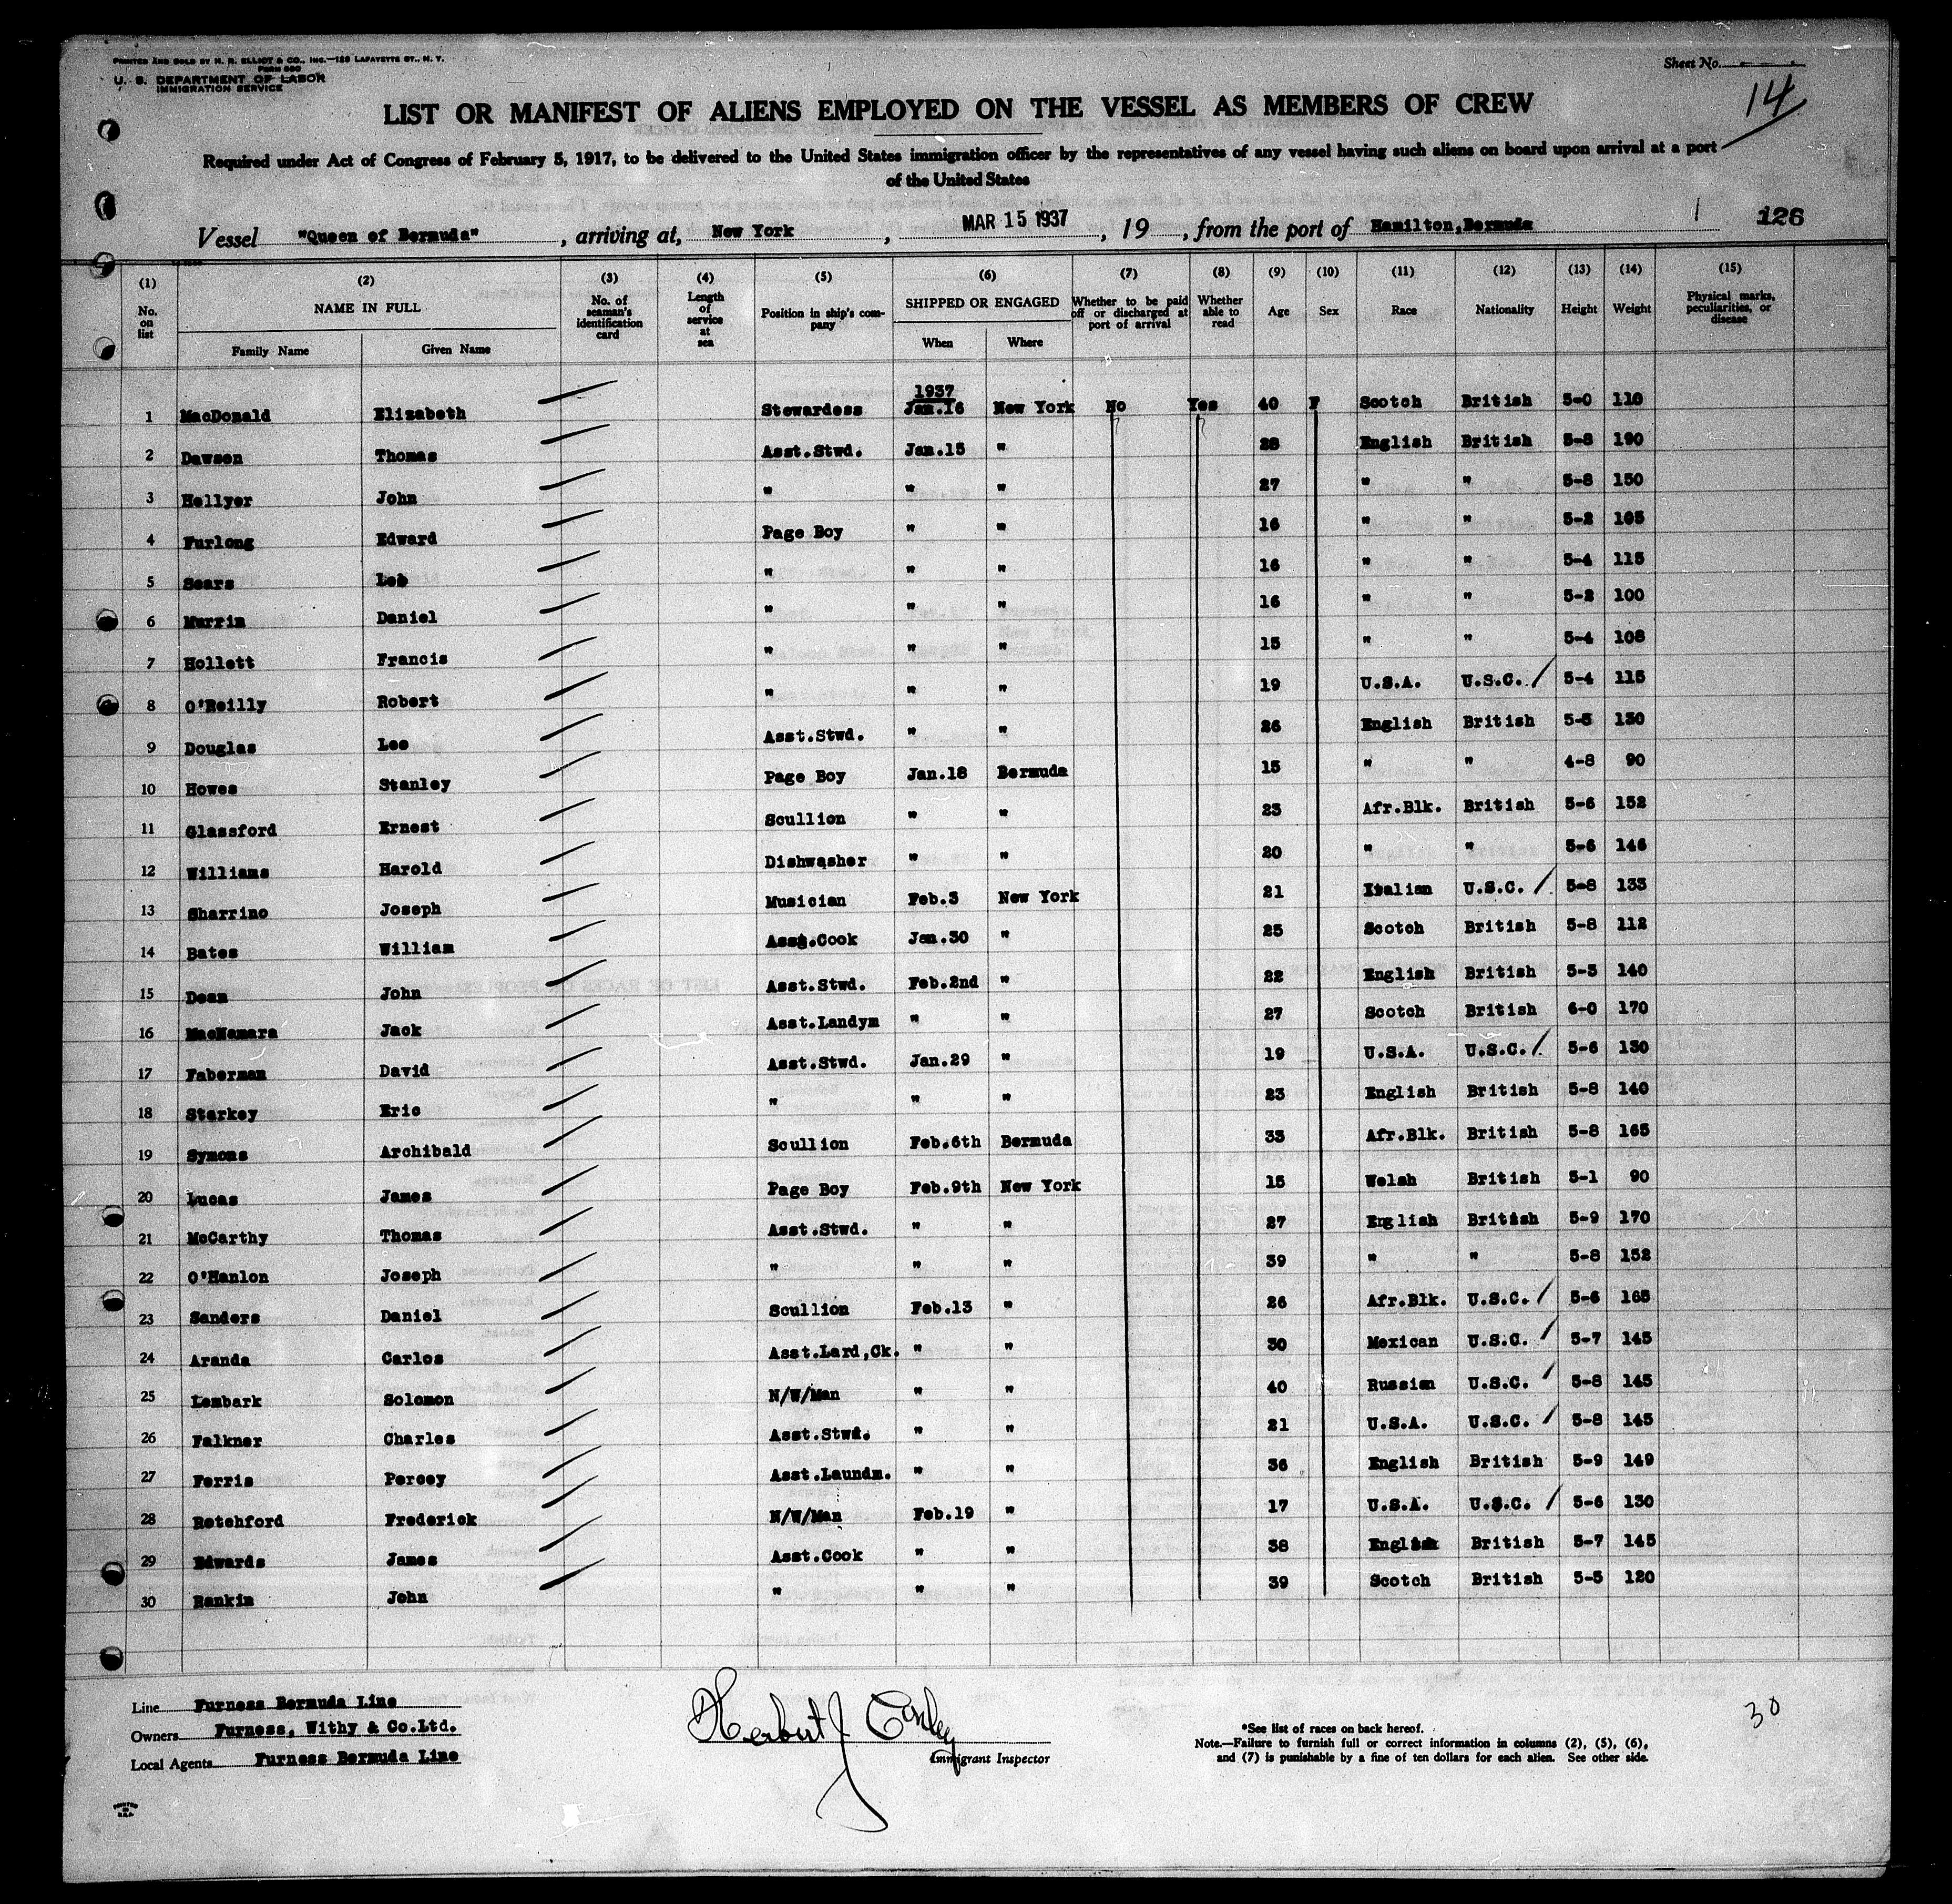 PRINTED AND SOLD BY H. R. ELLIOT & CO., INC.—129 LAFAYETTE ST., N. Y.
FORM 680
U. S. DEPARTMENT OF LABOR
IMMIGRATION SERVICE
Sheet No.
14
LIST OR MANIFEST OF ALIENS EMPLOYED ON THE VESSEL AS MEMBERS OF CREW
Required under Act of Congress of February 5, 1917, to be delivered to the United States immigration officer by the representatives of any vessel having such aliens on board upon arrival at a port
of the United States
Vessel "Queen of Bermuda", arriving at, New York, MAR 15 1937, 19, from the port of Hamilton,Bermuda 1 126
(1) No. on list (2) NAME IN FULL Family Name Given Name (3) No. of seaman's identification card (4) Length of service at sea (5) Position in ship's company (6) SHIPPED OR ENGAGED When Where (7) Whether to be paid off or discharged at port of arrival (8) Whether able to read (9) Age (10) Sex (11) Race (12) Nationality (13) Height (14) Weight (15) Physical marks, peculiarities, or disease
1937
1 MacDonald Elizabeth Stewardess Jan.16 New York No Yes 40 F Scotch British 5-0 110
2 Dawson Thomas Asst.Stwd. Jan.15 " 28 English British 5-8 190
3 Hellyer John " " " 27 " " 5-8 150
4 Furlong Edward Page Boy " " 16 " " 5-2 105
5 Sears Leo " " " 16 " " 5-4 115
6 Murrin Daniel " " " 16 " " 5-2 100
7 Hollett Francis " " " 15 " " 5-4 108
8 O'Reilly Robert " " " 19 U.S.A. U.S.C. 5-4 115
9 Douglas Lee Asst.Stwd. " " 26 English British 5-5 130
10 Howes Stanley Page Boy Jan.18 Bermuda 15 " " 4-8 90
11 Glassford Ernest Scullion " " 23 Afr.Blk. British 5-6 152
12 Williams Harold Dishwasher " " 20 " " 5-6 146
13 Sharrino Joseph Musician Feb.3 New York 21 Italian U.S.C. 5-8 133
14 Bates William Asst.Cook Jan.30 " 25 Scotch British 5-8 112
15 Dean John Asst.Stwd. Feb.2nd " 22 English British 5-3 140
16 MacNamara Jack Asst.Landym " " 27 Scotch British 6-0 170
17 Faberman David Asst.Stwd. Jan.29 " 19 U.S.A. U.S.C. 5-6 130
18 Starkey Eric " " " 23 English British 5-8 140
19 Symons Archibald Scullion Feb.6th Bermuda 33 Afr.Blk. British 5-8 165
20 Lucas James Page Boy Feb.9th New York 15 Welsh British 5-1 90
21 McCarthy Thomas Asst.Stwd. " " 27 English British 5-9 170
22 O'Hanlon Joseph " " " 39 " " 5-8 152
23 Sanders Daniel Scullion Feb.13 " 26 Afr.Blk. U.S.C. 5-6 165
24 Aranda Carlos Asst.Lard,Ck. " " 30 Mexican U.S.C. 5-7 145
25 Lembark Solomon N/W/Man " " 40 Russian U.S.C. 5-8 145
26 Falkner Charles Asst.Stwd. " " 21 U.S.A. U.S.C. 5-8 145
27 Ferris Percey Asst.Laundm. " " 36 English British 5-9 149
28 Retchford Frederick N/W/Man Feb.19 " 17 U.S.A. U.S.C. 5-6 130
29 Edwards James Asst.Cook " " 38 English British 5-7 145
30 Rankin John " " " 39 Scotch British 5-5 120
Line Furness Bermuda Line
Owners Furness, Withy & Co.Ltd.
Local Agents Furness Bermuda Line
Herbert J
Immigrant Inspector
*See list of races on back hereof.
Note.—Failure to furnish full or correct information in columns (2), (5), (6),
and (7) is punishable by a fine of ten dollars for each alien. See other side.
30
PRINTED
IN
U.S.A.